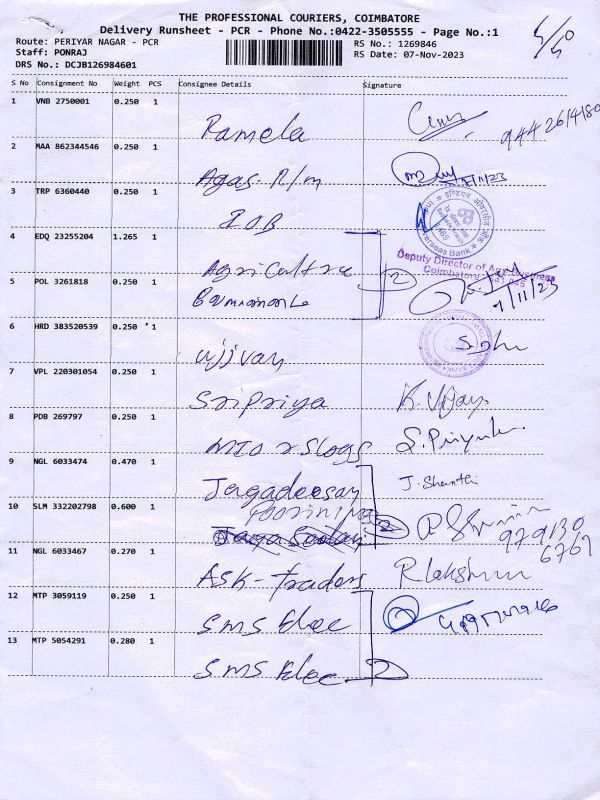 THE PROFESSIONAL COURIERS, COIMBATORE
Delivery Runsheet - PCR - Phone No.:0422-3505555 - Page No.:1
Route: PERIYAR NAGAR - PCR
RS No.: 1269846
Staff: PONRAJ
RS Date: 07-Nov-2023
DRS No.: DCJB126984601
S No Consignment No Weight PCS Consignee Details Signature
1 VNB 2750001 0.250 1
Ramela
2 MAA 862344546 0.250 1
Agas. R/m
3 TRP 6360440 0.250 1
IOB
4 EDQ 23255204 1.265 1
Deputy Director of Agri Business
Coimbatore
Agriculture
2
5 POL 3261818 0.250 1
7/11/23
6 HRD 383520539 0.250 1
ujjvan
7 VPL 220301054 0.250 1
Sripriya K. Vijay
8 PDB 269797 0.250 1
S. Priya
9 NGL 6033474 0.470 1
Jagadeesan J. Shanthi
10 SLM 332202798 0.600 1
2
979130
6767
11 NGL 6033467 0.270 1
ASK-traders R Lakshmi
12 MTP 3059119 0.250 1
SMS Elec
13 MTP 5054291 0.280 1
SMS Elec 2